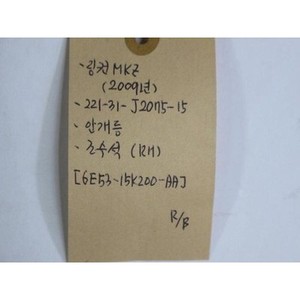 - 링컨 MKZ
(2009년)
- 221-31-J2075-15
- 안개등
- 조수석 (RH)
[6E53-15K200-AA]
R/B